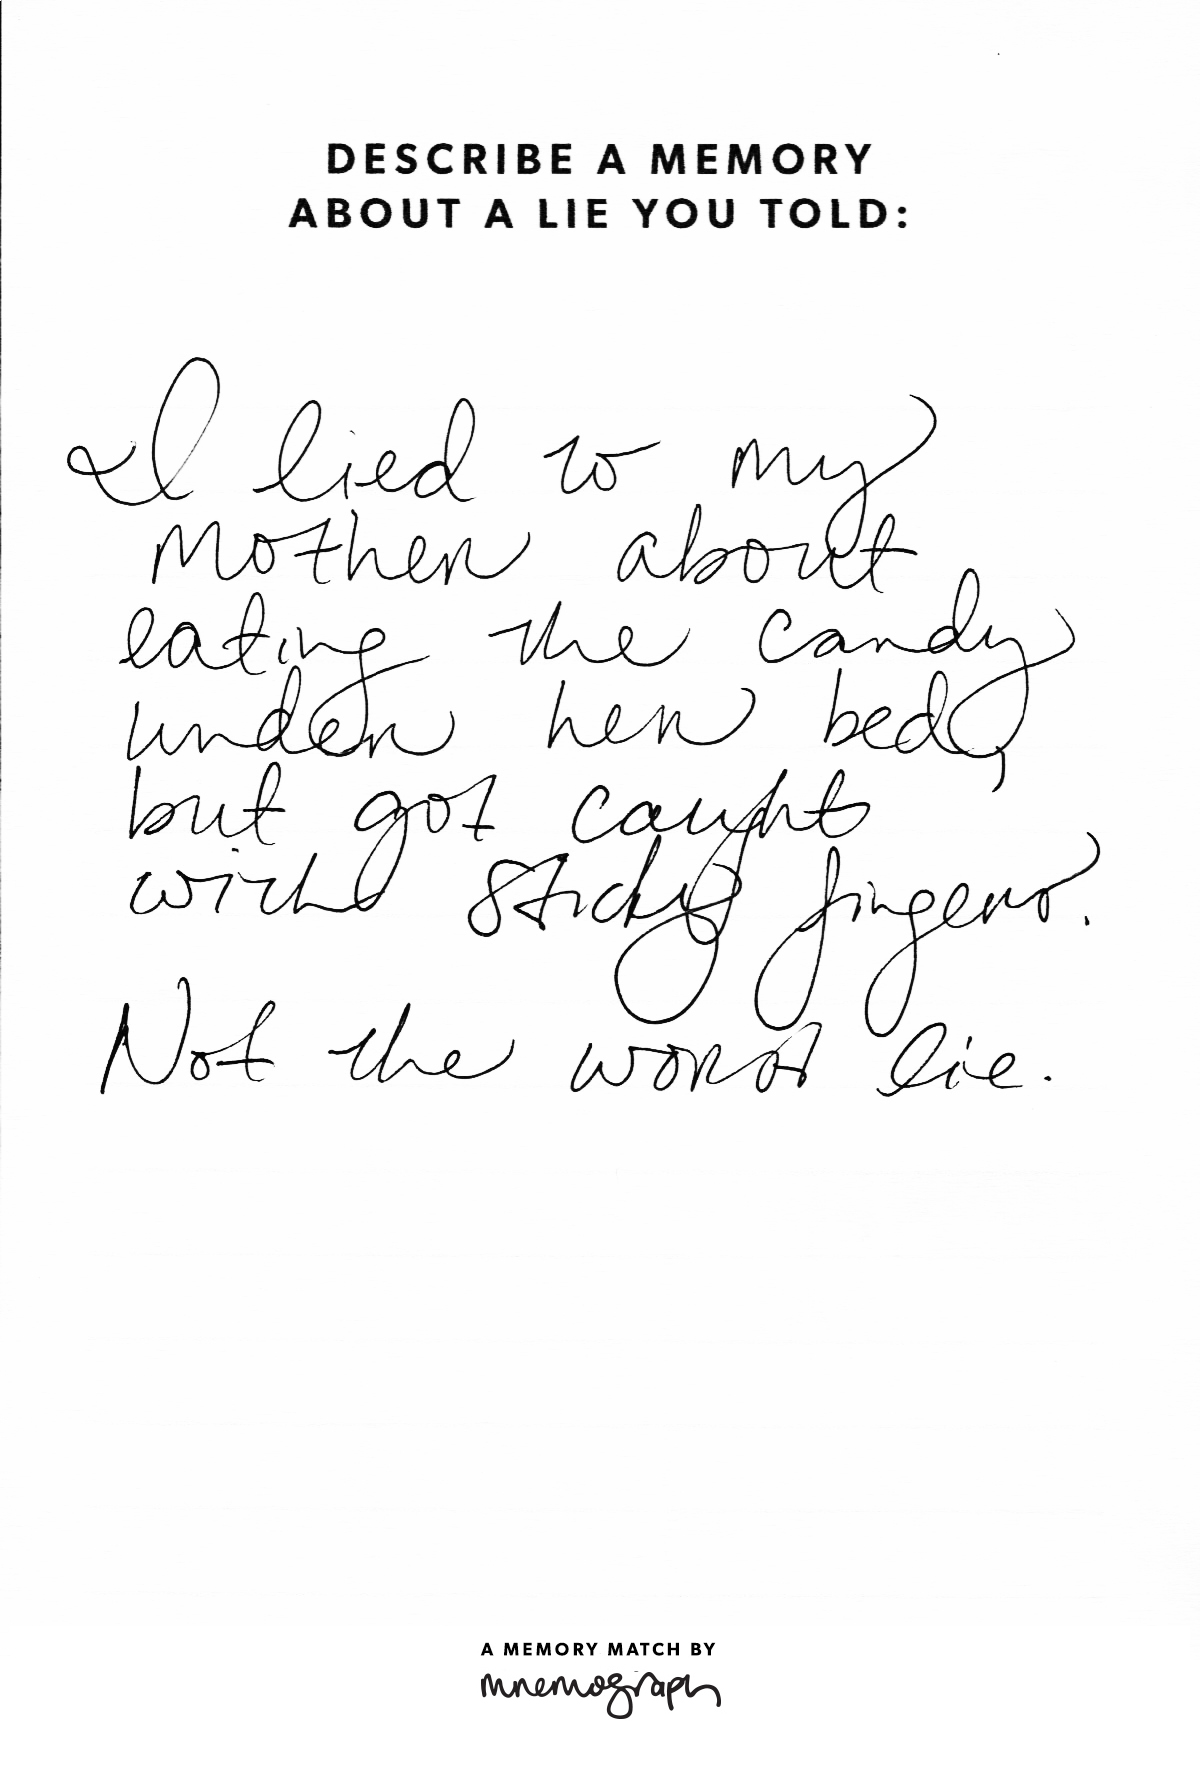 DESCRIBE A MEMORY
ABOUT A LIE YOU TOLD:
I lied to my
mother about
eating the candy
under her bed,
but got caught
with sticky fingers.
Not the worst lie.
A MEMORY MATCH BY
mnemograph